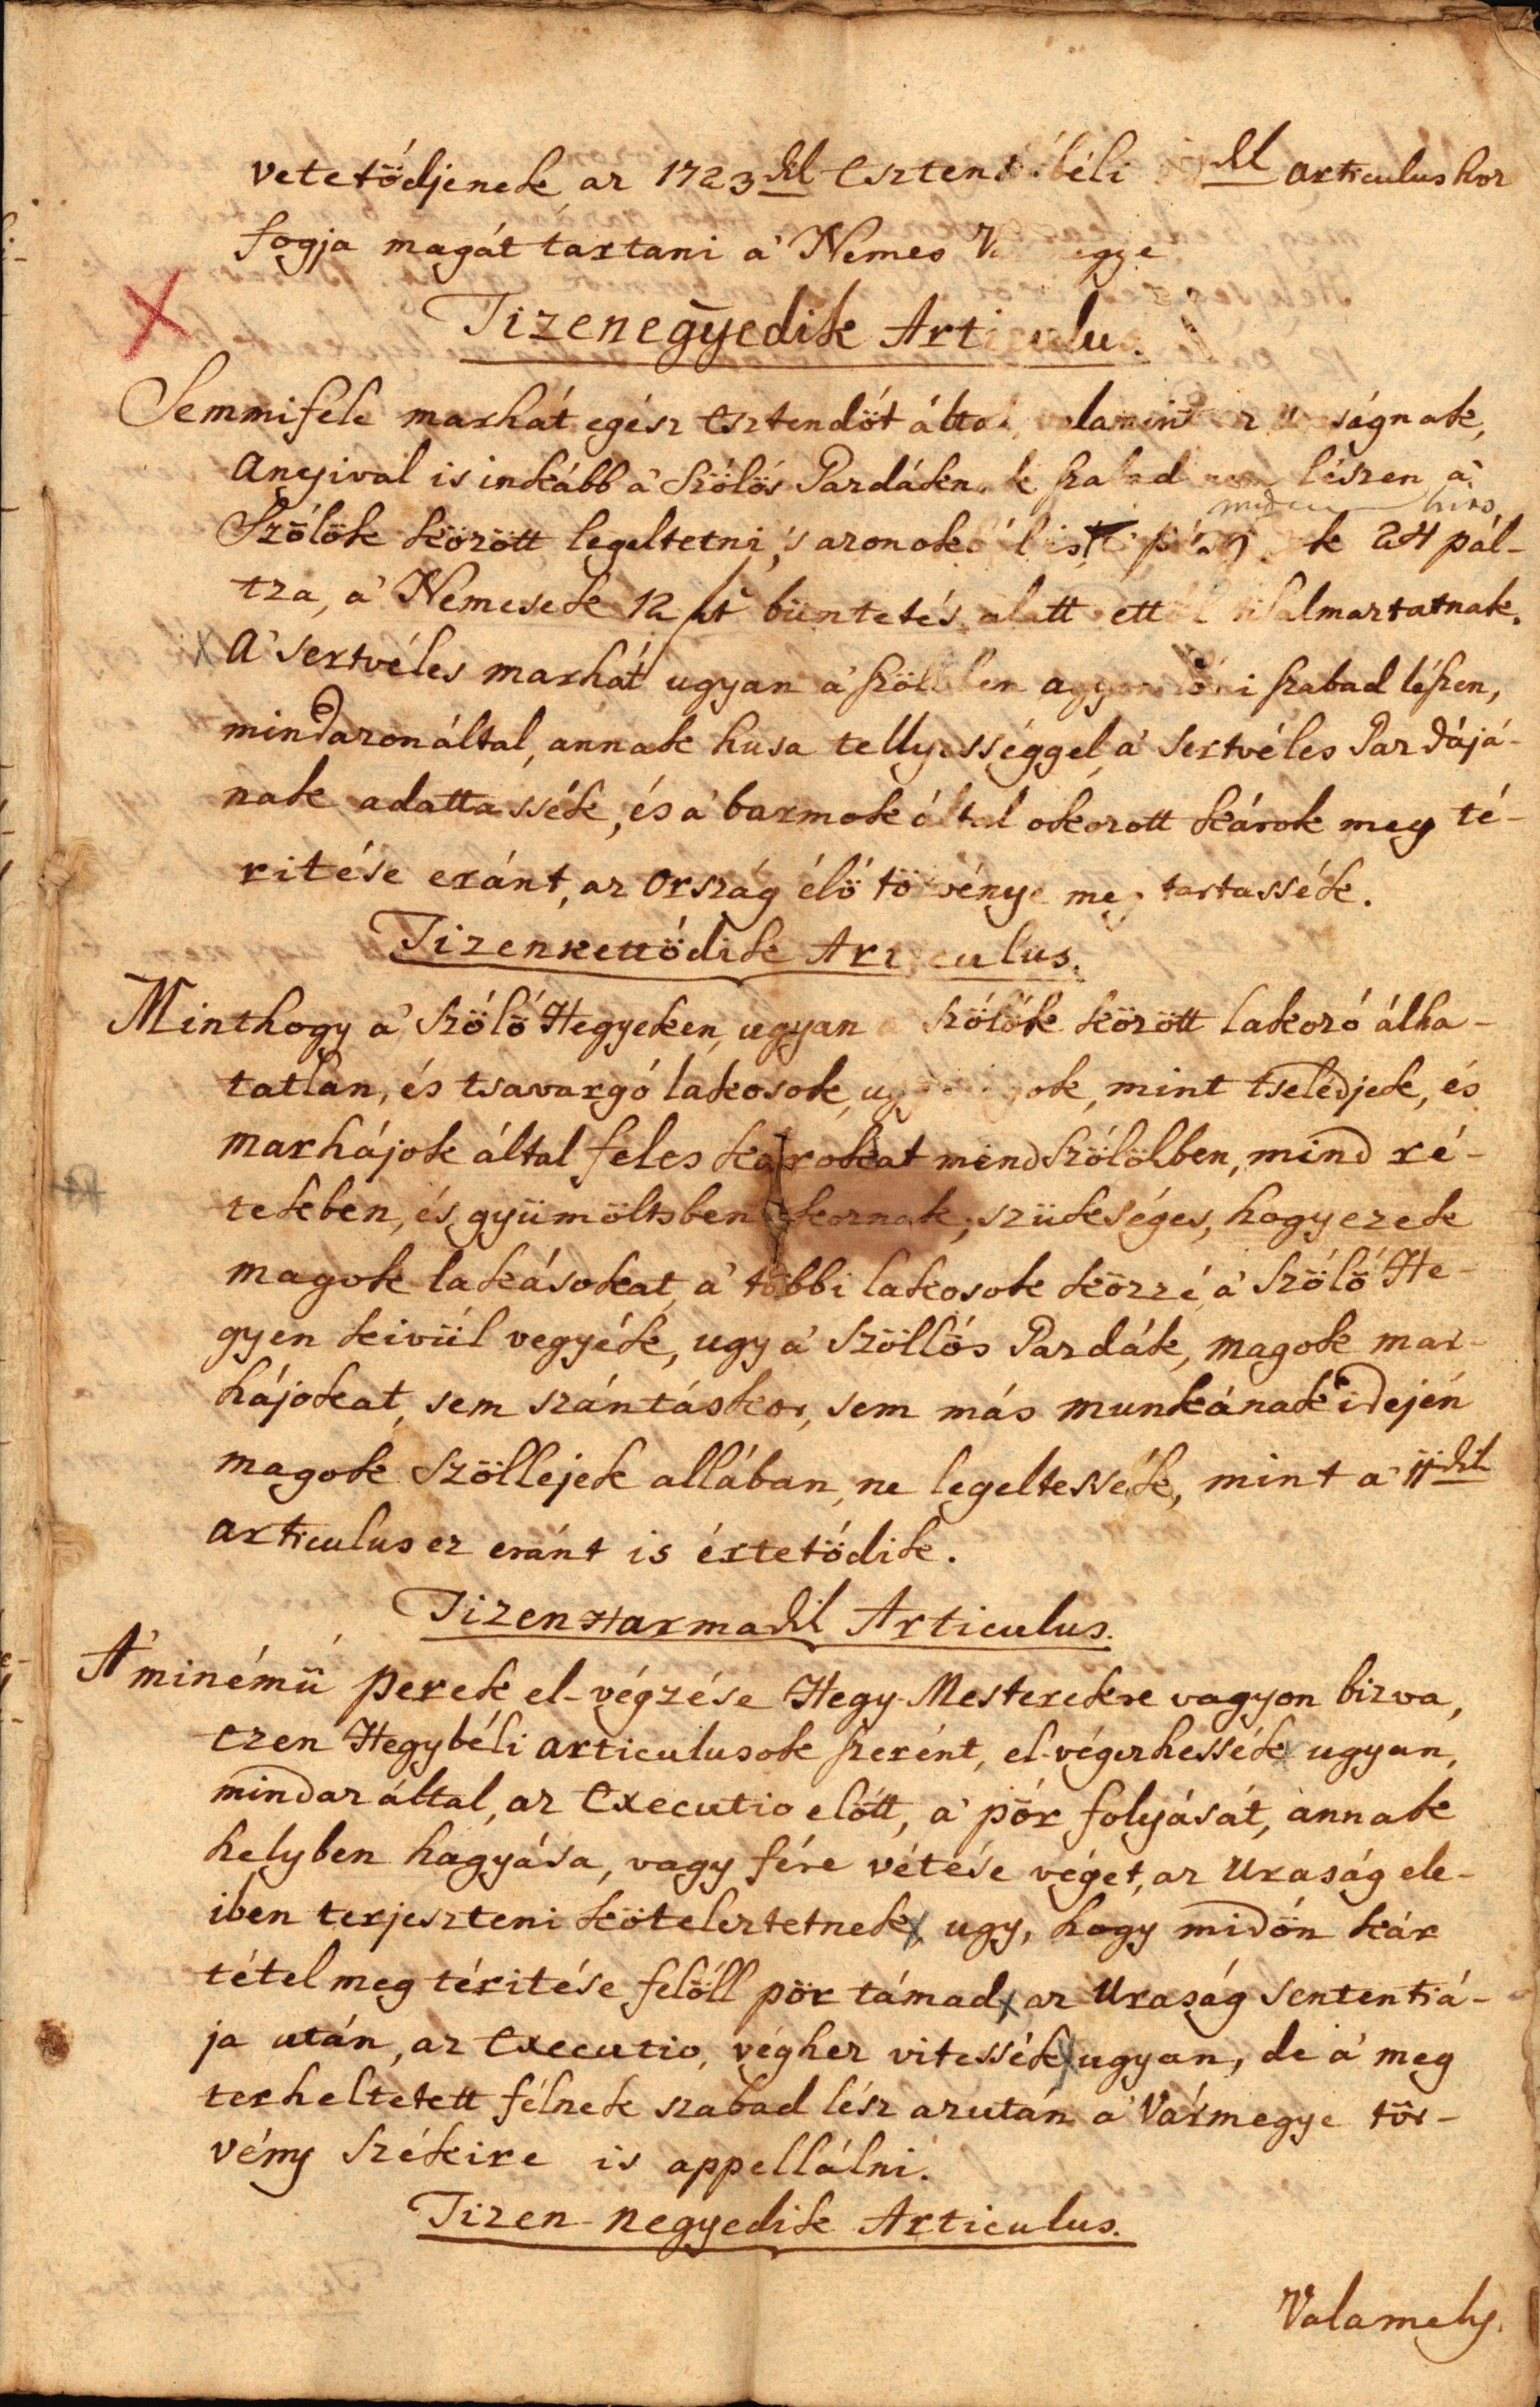 vetetődjenek, az 1723dik Esztendőbéli dik articulushoz
fogja magát tartani a' Nemes Vármegye
Tizenegyedik Articulus.
Semmiféle marhát egész Esztendőt által, valamint az Uraságnak,
anyival is inkább a' Szőlős Gazdáknak szabad nem lészen a'
Szőlők között legeltetni, 's azonok 24 pál-
tza, a' Nemesek 12 ft büntetés alatt ettől tilalmaztatnak.
A' sertvéles marhát ugyan a' szőllőben agyon lőni szabad lészen,
mindazonáltal, annak husa tellyességgel a' sertvéles Gazdájá-
nak adattassék, és a' barmok által okozott károk meg té-
ritése eránt, az Ország élő törvénye meg tartassék.
Tizenkettődik Articulus.
Minthogy a' Szőlő Hegyeken, ugyan a Szőlők között lakozó álha-
tatlan, és tsavargó lakosok, ugy magok, mint tselédjek, és
marhájok által feles károkat mind Szőlőkben, mind ré-
tekben, és gyümöltsben okoznak, szükséges, hogy ezek
magok lakásokat a' többi lakosok közzé, a' Szőlő He-
gyen kivül vegyék, ugy a' Szöllős Gazdák, magok mar-
hájokat, sem szántáskor, sem más munkának idején
magok Szöllejek allában, ne legeltessék, mint a' 11dik
articulus ez eránt is értetődik.
Tizen Harmadik Articulus.
A' minémü perek el-végzése Hegy-Mesterekre vagyon bizva,
ezen Hegybéli articulusok szerént, el-végezhessék ugyan,
mindaz által, az Executio előtt, a' pör folyását, annak
helyben hagyása, vagy fére vétése véget, az Uraság ele-
iben terjeszteni köteleztetnek, ugy, hogy midőn kár
tétel meg téritése felőll pör támad, az Uraság Sententiá-
ja után, az Executio, véghez vitessék ugyan, de a' meg
terheltetett félnek szabad lész azután a' Vármegye tör-
vény Székire is appellálni.
Tizen-negyedik Articulus.
Valamely